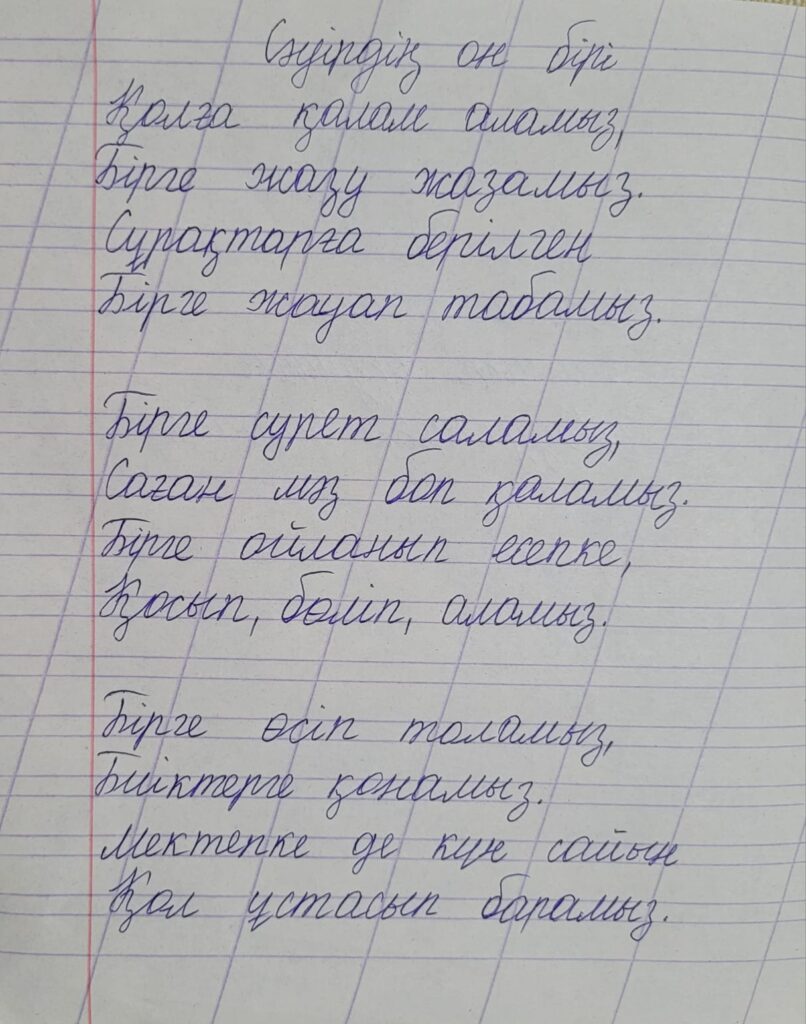 Сәуірдің он бірі
Қолға қалам аламыз,
Бірге жазу жазамыз.
Сұрақтарға берілген
Бірге жауап табамыз.
Бірге сурет саламыз,
Саған мәз боп қаламыз.
Бірге ойланып есепке,
Қосып, бөліп, аламыз.
Бірге өсіп толамыз,
Биіктерге қонамыз.
Мектепке де күн сайын
Қол ұстасып барамыз.